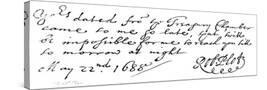 Yors dated fro ye Treasury Chamber
came to me so late, that twill
be impossible for me to reach you till
to morrow at night
May 22nd 1688 Rob Plott